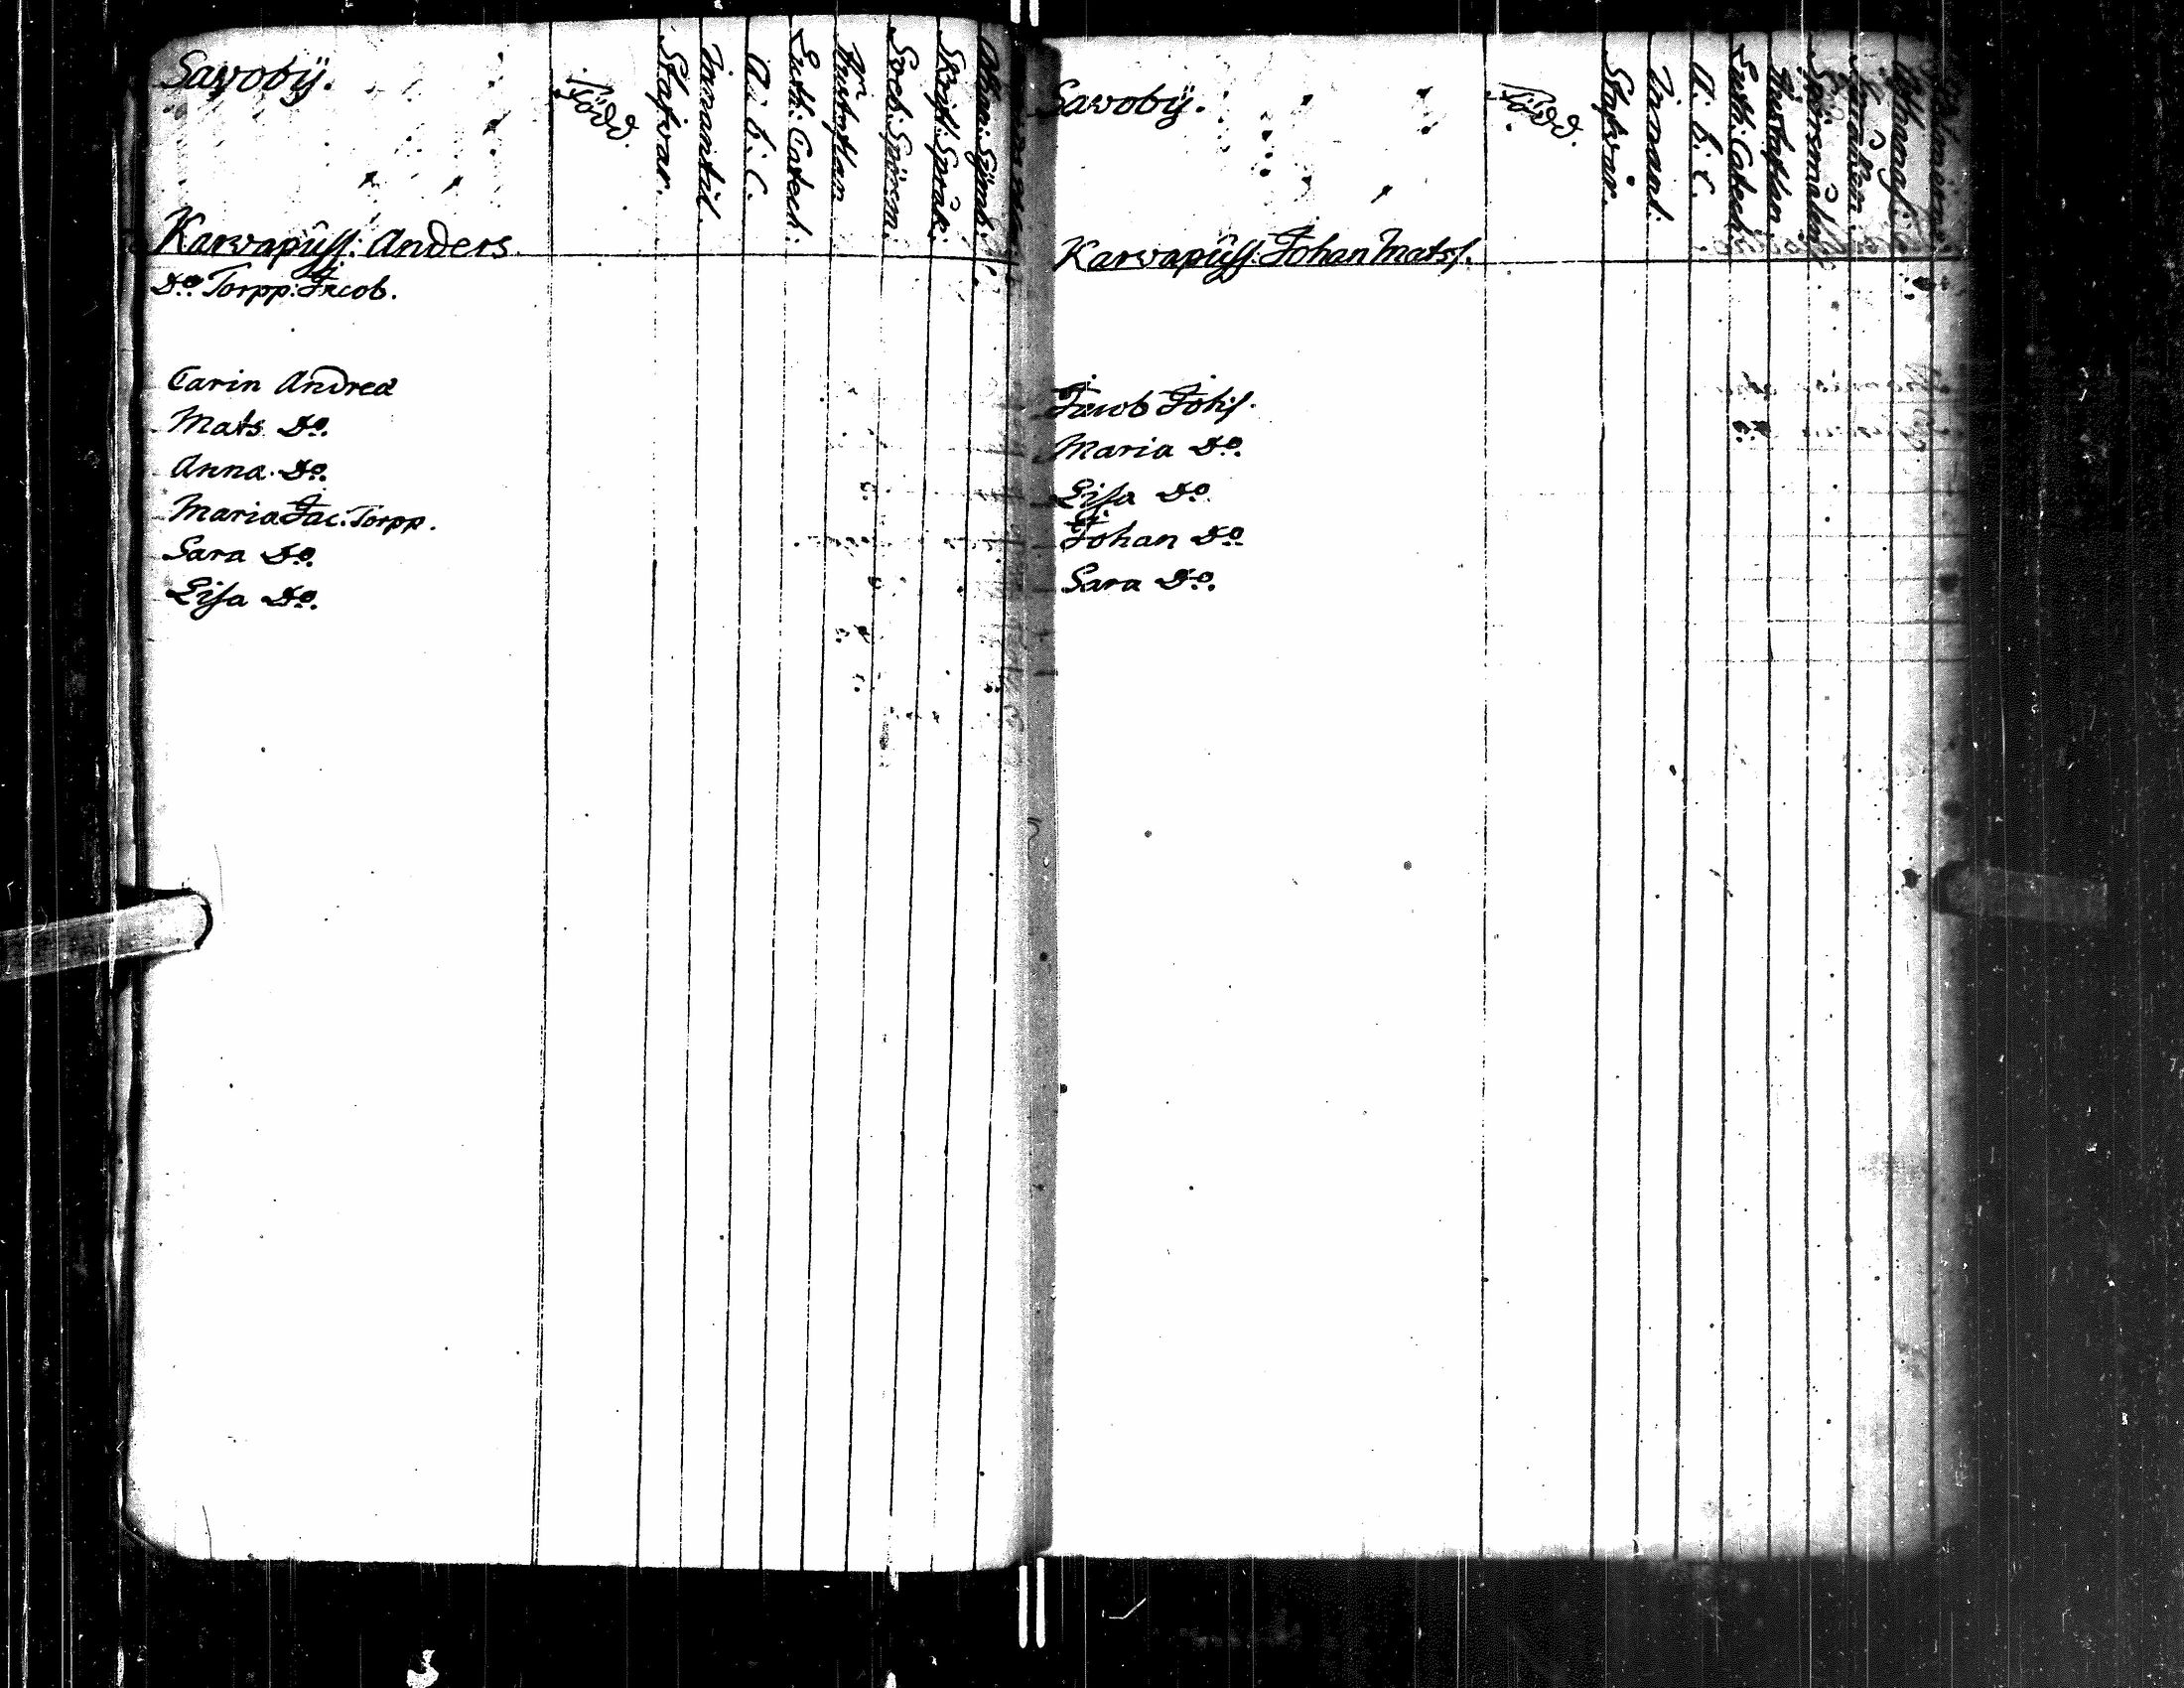 Savoby.
Född.
Stafvar.
Innantil.
A. b. C.
Luth: Catech:
Hustaflan
Sveb: Spörsm:
Skrift: Språk:
Athan: Symb:
Karvapuss: Anders.
Do. Torpp: Jacob.
Carin Andreæ
Mats Do.
Anna. Do.
Maria Jac: Torpp.
Sara Do.
Lisa Do.
Savoby.
Född.
Stafvar.
Innant:
A. b. C.
Luth: Catech:
Hustaflan
Spörsmålen
Athanas:
Karvapuss: Johan Matss.
Jacob Johs.
Maria Do.
Lisa Do.
Johan Do.
Sara Do.